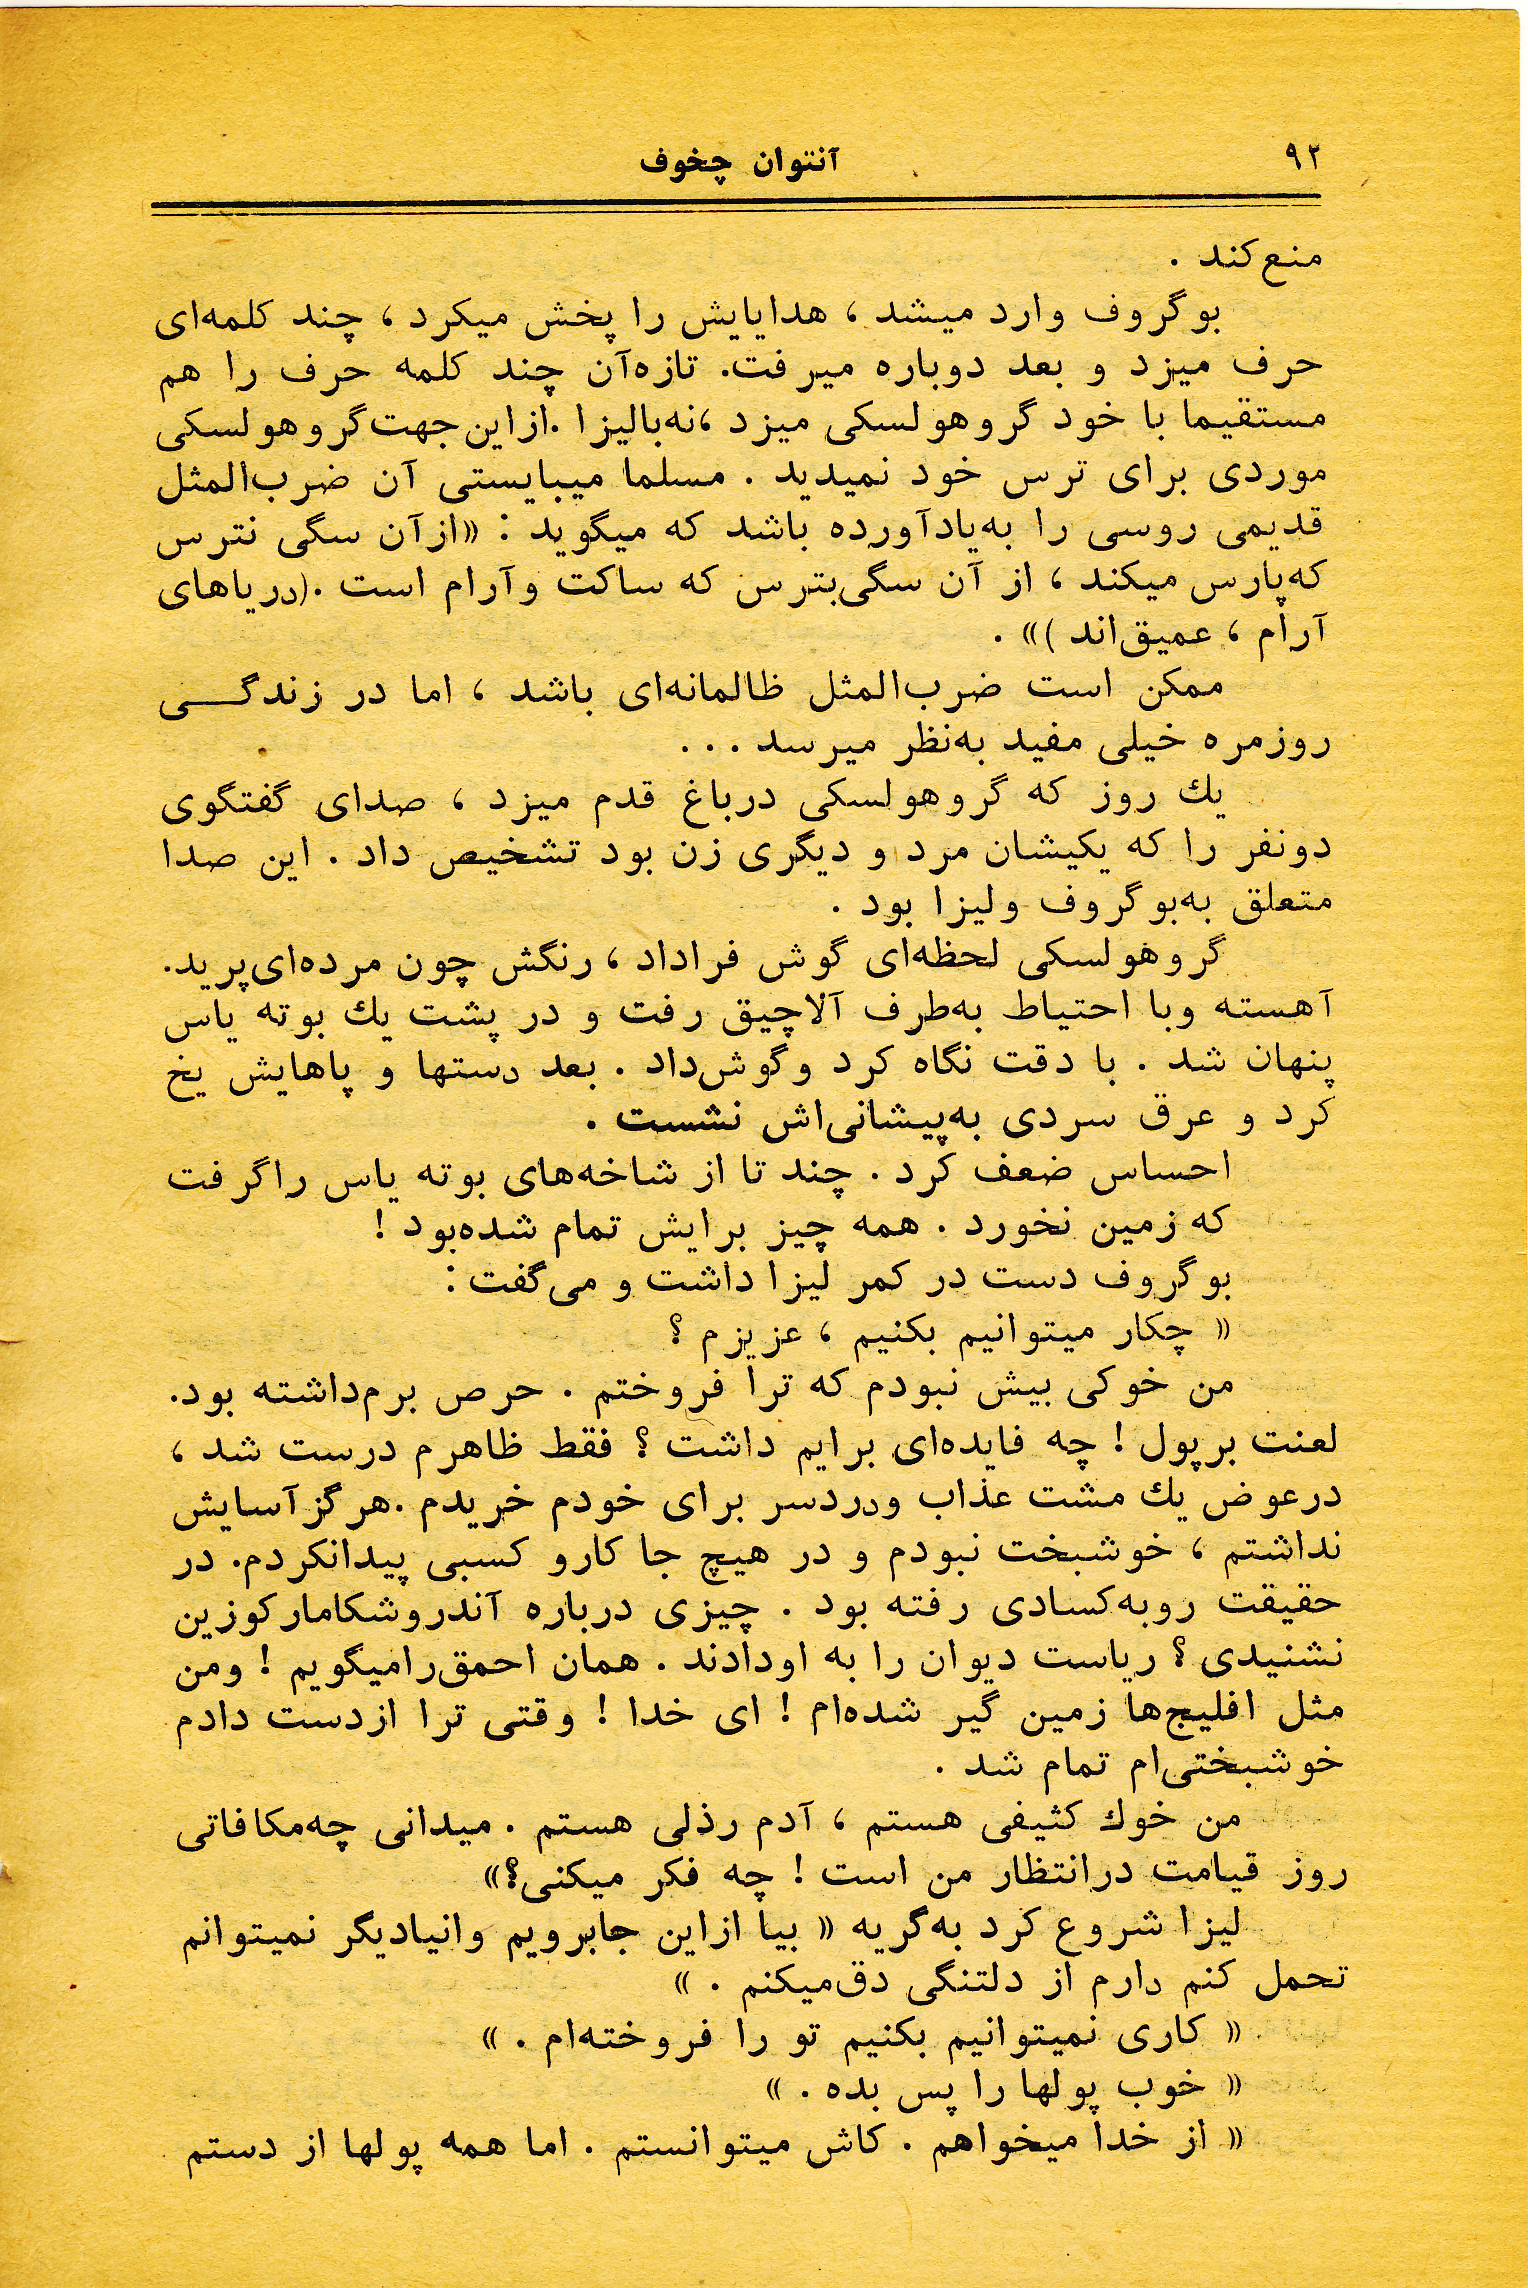 ۹۲
آنتوان چخوف
منع‌کند .
بوگروف وارد میشد ، هدایایش را پخش میکرد ، چند کلمه‌ای
حرف میزد و بعد دوباره میرفت. تازه‌آن چند کلمه حرف را هم
مستقیما با خود گروهولسکی میزد ،نه‌بالیزا .ازاین‌جهت‌گروهولسکی
موردی برای ترس خود نمیدید . مسلما میبایستی آن ضرب‌المثل
قدیمی روسی را به‌یادآورده باشد که میگوید : «ازآن سگی نترس
که‌پارس میکند ، از آن سگی‌بترس که ساکت وآرام است .(دریاهای
آرام ، عمیق‌اند )» .
ممکن است ضرب‌المثل ظالمانه‌ای باشد ، اما در زندگـــی
روزمره خیلی مفید به‌نظر میرسد . . .
یك روز که گروهولسکی درباغ قدم میزد ، صدای گفتگوی
دونفر را که یکیشان مرد و دیگری زن بود تشخیص داد . این صدا
متعلق به‌بوگروف ولیزا بود .
گروهولسکی لحظه‌ای گوش فراداد ، رنگش چون مرده‌ای‌پرید.
آهسته وبا احتیاط به‌طرف آلاچیق رفت و در پشت یك بوته یاس
پنهان شد . با دقت نگاه کرد وگوش‌داد . بعد دستها و پاهایش یخ
کرد و عرق سردی به‌پیشانی‌اش نشست .
احساس ضعف کرد . چند تا از شاخه‌های بوته یاس راگرفت
که زمین نخورد . همه چیز برایش تمام شده‌بود !
بوگروف دست در کمر لیزا داشت و می‌گفت :
« چکار میتوانیم بکنیم ، عزیزم ؟
من خوکی بیش نبودم که ترا فروختم . حرص برم‌داشته بود.
لعنت برپول ! چه فایده‌ای برایم داشت ؟ فقط ظاهرم درست شد ،
درعوض یك مشت عذاب ودردسر برای خودم خریدم .هرگزآسایش
نداشتم ، خوشبخت نبودم و در هیچ جا کارو کسبی پیدانکردم. در
حقیقت روبه‌کسادی رفته بود . چیزی درباره آندروشکامارکوزین
نشنیدی؟ ریاست دیوان را به اودادند . همان احمق‌رامیگویم ! ومن
مثل افلیج‌ها زمین گیر شده‌ام ! ای خدا ! وقتی ترا ازدست دادم
خوشبختی‌ام تمام شد .
من خوك کثیفی هستم ، آدم رذلی هستم . میدانی چه‌مکافاتی
روز قیامت درانتظار من است ! چه فکر میکنی؟»
لیزا شروع کرد به‌گریه « بیا ازاین جابرویم وانیادیگر نمیتوانم
تحمل کنم دارم از دلتنگی دق‌میکنم . »
« کاری نمیتوانیم بکنیم تو را فروخته‌ام . »
« خوب پولها را پس بده . »
« از خدا میخواهم . کاش میتوانستم . اما همه پولها از دستم